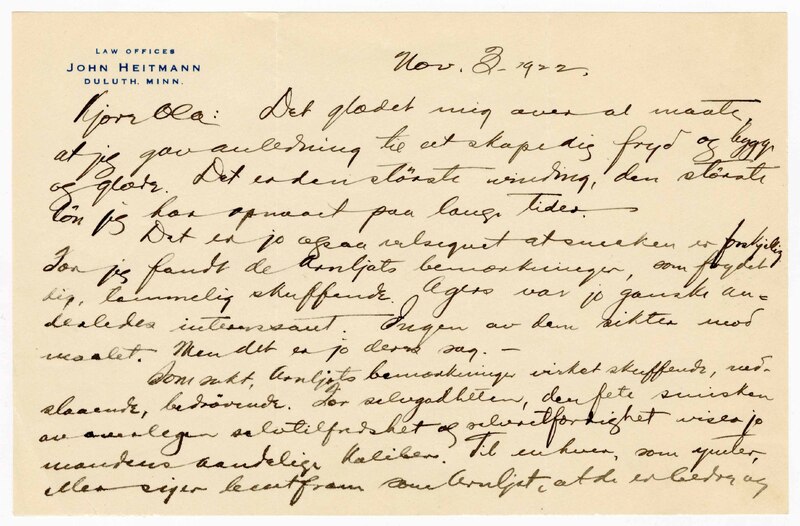 LAW OFFICES
JOHN HEITMANN
DULUTH, MINN.
Nov. 3 - 1922.
Kjære Ola: Det glædet mig over al maate,
at jeg gav anledning til at skape dig fryd og hygge
og glæde. Det er den største vinding, den største
løn jeg har opnaaet paa lange tider.
Det er jo ogsaa velsignet at smaken er forskjellig
For jeg fandt de Arnljots bemærkninger, som frydet
dig, temmelig skuffende. Agers var jo ganske an=
derledes interessant. Ingen av dem sikter mod
maalet. Men det er jo deres sag. -
Som sakt, Arnljots bemærkninger virket skuffende, ned-
slaaende, bedrøvende. For selvgodheten, den fete smisken
av overlegen selvtilfredshet og selvretfærdighet viser jo
mandens aandelige Kaliber. Til enhver, som ymter,
eller siger bent fram som Arnljot, at de er bedre og